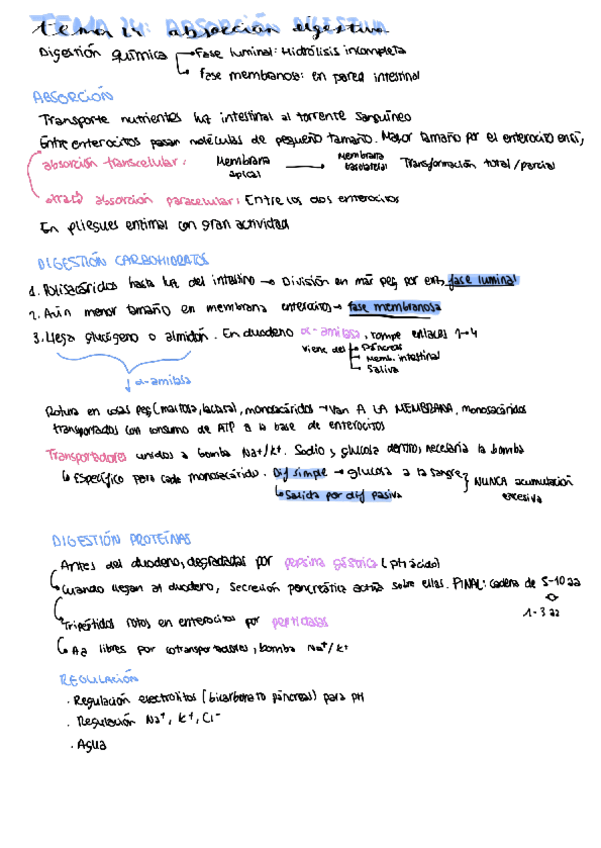 TEMA 24: ABSORCIÓN DIGESTIVA
Digestión química → Fase luminal: Hidrólisis incompleta
→ Fase membranosa: en pared intestinal
ABSORCIÓN
Transporte nutrientes luz intestinal al torrente sanguíneo
Entre enterocitos pasan moléculas de pequeño tamaño. Mayor tamaño por el enterocito en sí,
absorción transcelular: Membrana apical → Membrana basolateral Transformación total/parcial
absorción paracelular: Entre los dos enterocitos
En pliegues con gran actividad
DIGESTIÓN CARBOHIDRATOS
1. Polisacáridos hasta luz del intestino → División en más peq por enz, fase luminal
2. Aún menor tamaño en membrana enterocitos → fase membranosa
3. Llega glucógeno o almidón. En duodeno α-amilasa, rompe enlaces 1→4
Viene del → Páncreas
→ Memb. intestinal
→ Saliva
↓ α-amilasa
Rotura en cosas peq (maltosa, lactosa), monosacáridos → Van A LA MEMBRANA, monosacáridos
transportados con consumo de ATP a la base de enterocitos
Transportadores unidos a bomba Na+/K+. Sodio y glucosa dentro, necesaria la bomba
↳ Específico para cada monosacárido. Dif simple → glucosa a la sangre } NUNCA acumulación excesiva
↳ Salida por dif pasiva
DIGESTIÓN PROTEÍNAS
Antes del duodeno, degradadas por pepsina gástrica (pH ácido)
Cuando llegan al duodeno, secreción pancreática actúa sobre ellas. FINAL: cadena de 5-10 aa
1-3 aa
Tripéptidos rotos en enterocitos por peptidasas
↳ Aa libres por cotransportadores, bomba Na+/K+
REGULACIÓN
· Regulación electrolitos (bicarbonato páncreas) para pH
· Regulación Na+, K+, Cl-
· Agua